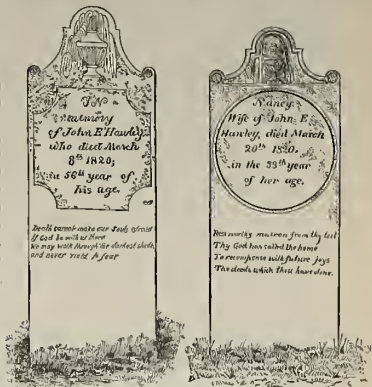 IN
memory
of John, E Hawley,
who died March
8th 1820;
in 56th year of
his age.
Death cannot make our Souls afraid
If God be with us there
We may walk through the darkest shade
and never yield to fear
Nancy,
Wife of John E
Hawley, died March
20th 1820.
in the 39th year
of her age.
worthy matron from thy toil
Thy God has called the home
To recompense with future joys
The deeds which thou have done.